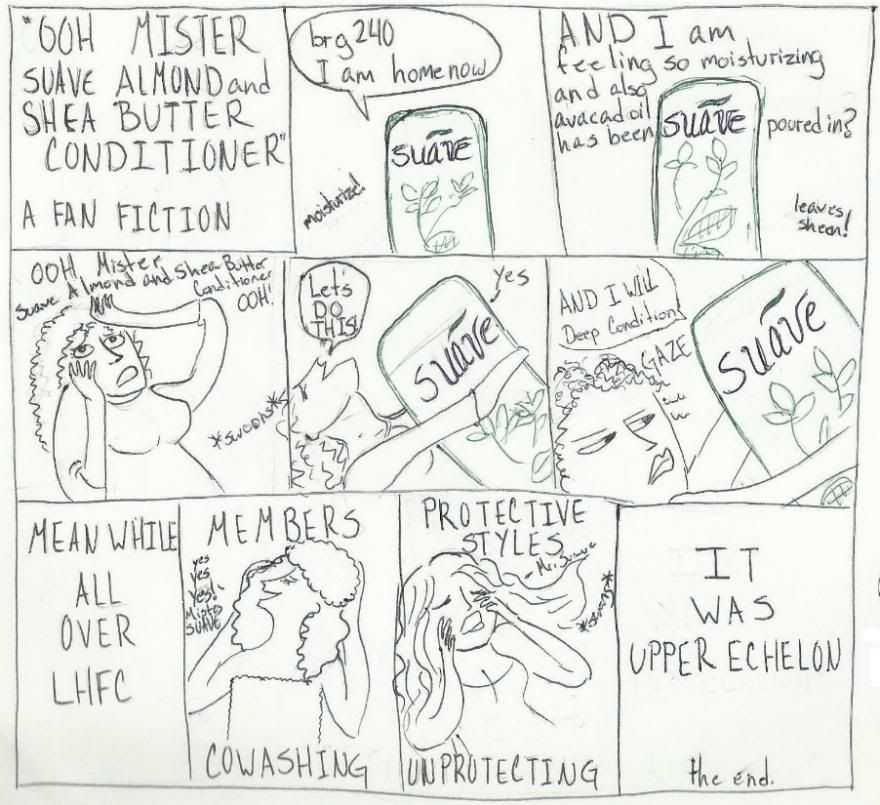 "OOH MISTER
SUAVE ALMOND and
SHEA BUTTER
CONDITIONER"
A FAN FICTION
brg240
I am home now
SUAVE
moisturize!
AND I am
feeling so moisturizing
and also
avacad oil
has been
SUAVE
poured in?
leaves
sheen!
OOH, Mister
Suave Almond and Shea Butter
Conditioner
OOH!
*swoons*
Let's
DO
THIS!
yes
SUAVE
AND I WILL
Deep Condition!
GAZE
SUAVE
MEANWHILE
ALL
OVER
LHFC
MEMBERS
yes
yes
yes!
Mister
SUAVE
COWASHING
PROTECTIVE
STYLES
Mr. Suave
*swoons*
UNPROTECTING
IT
WAS
UPPER ECHELON
the end.